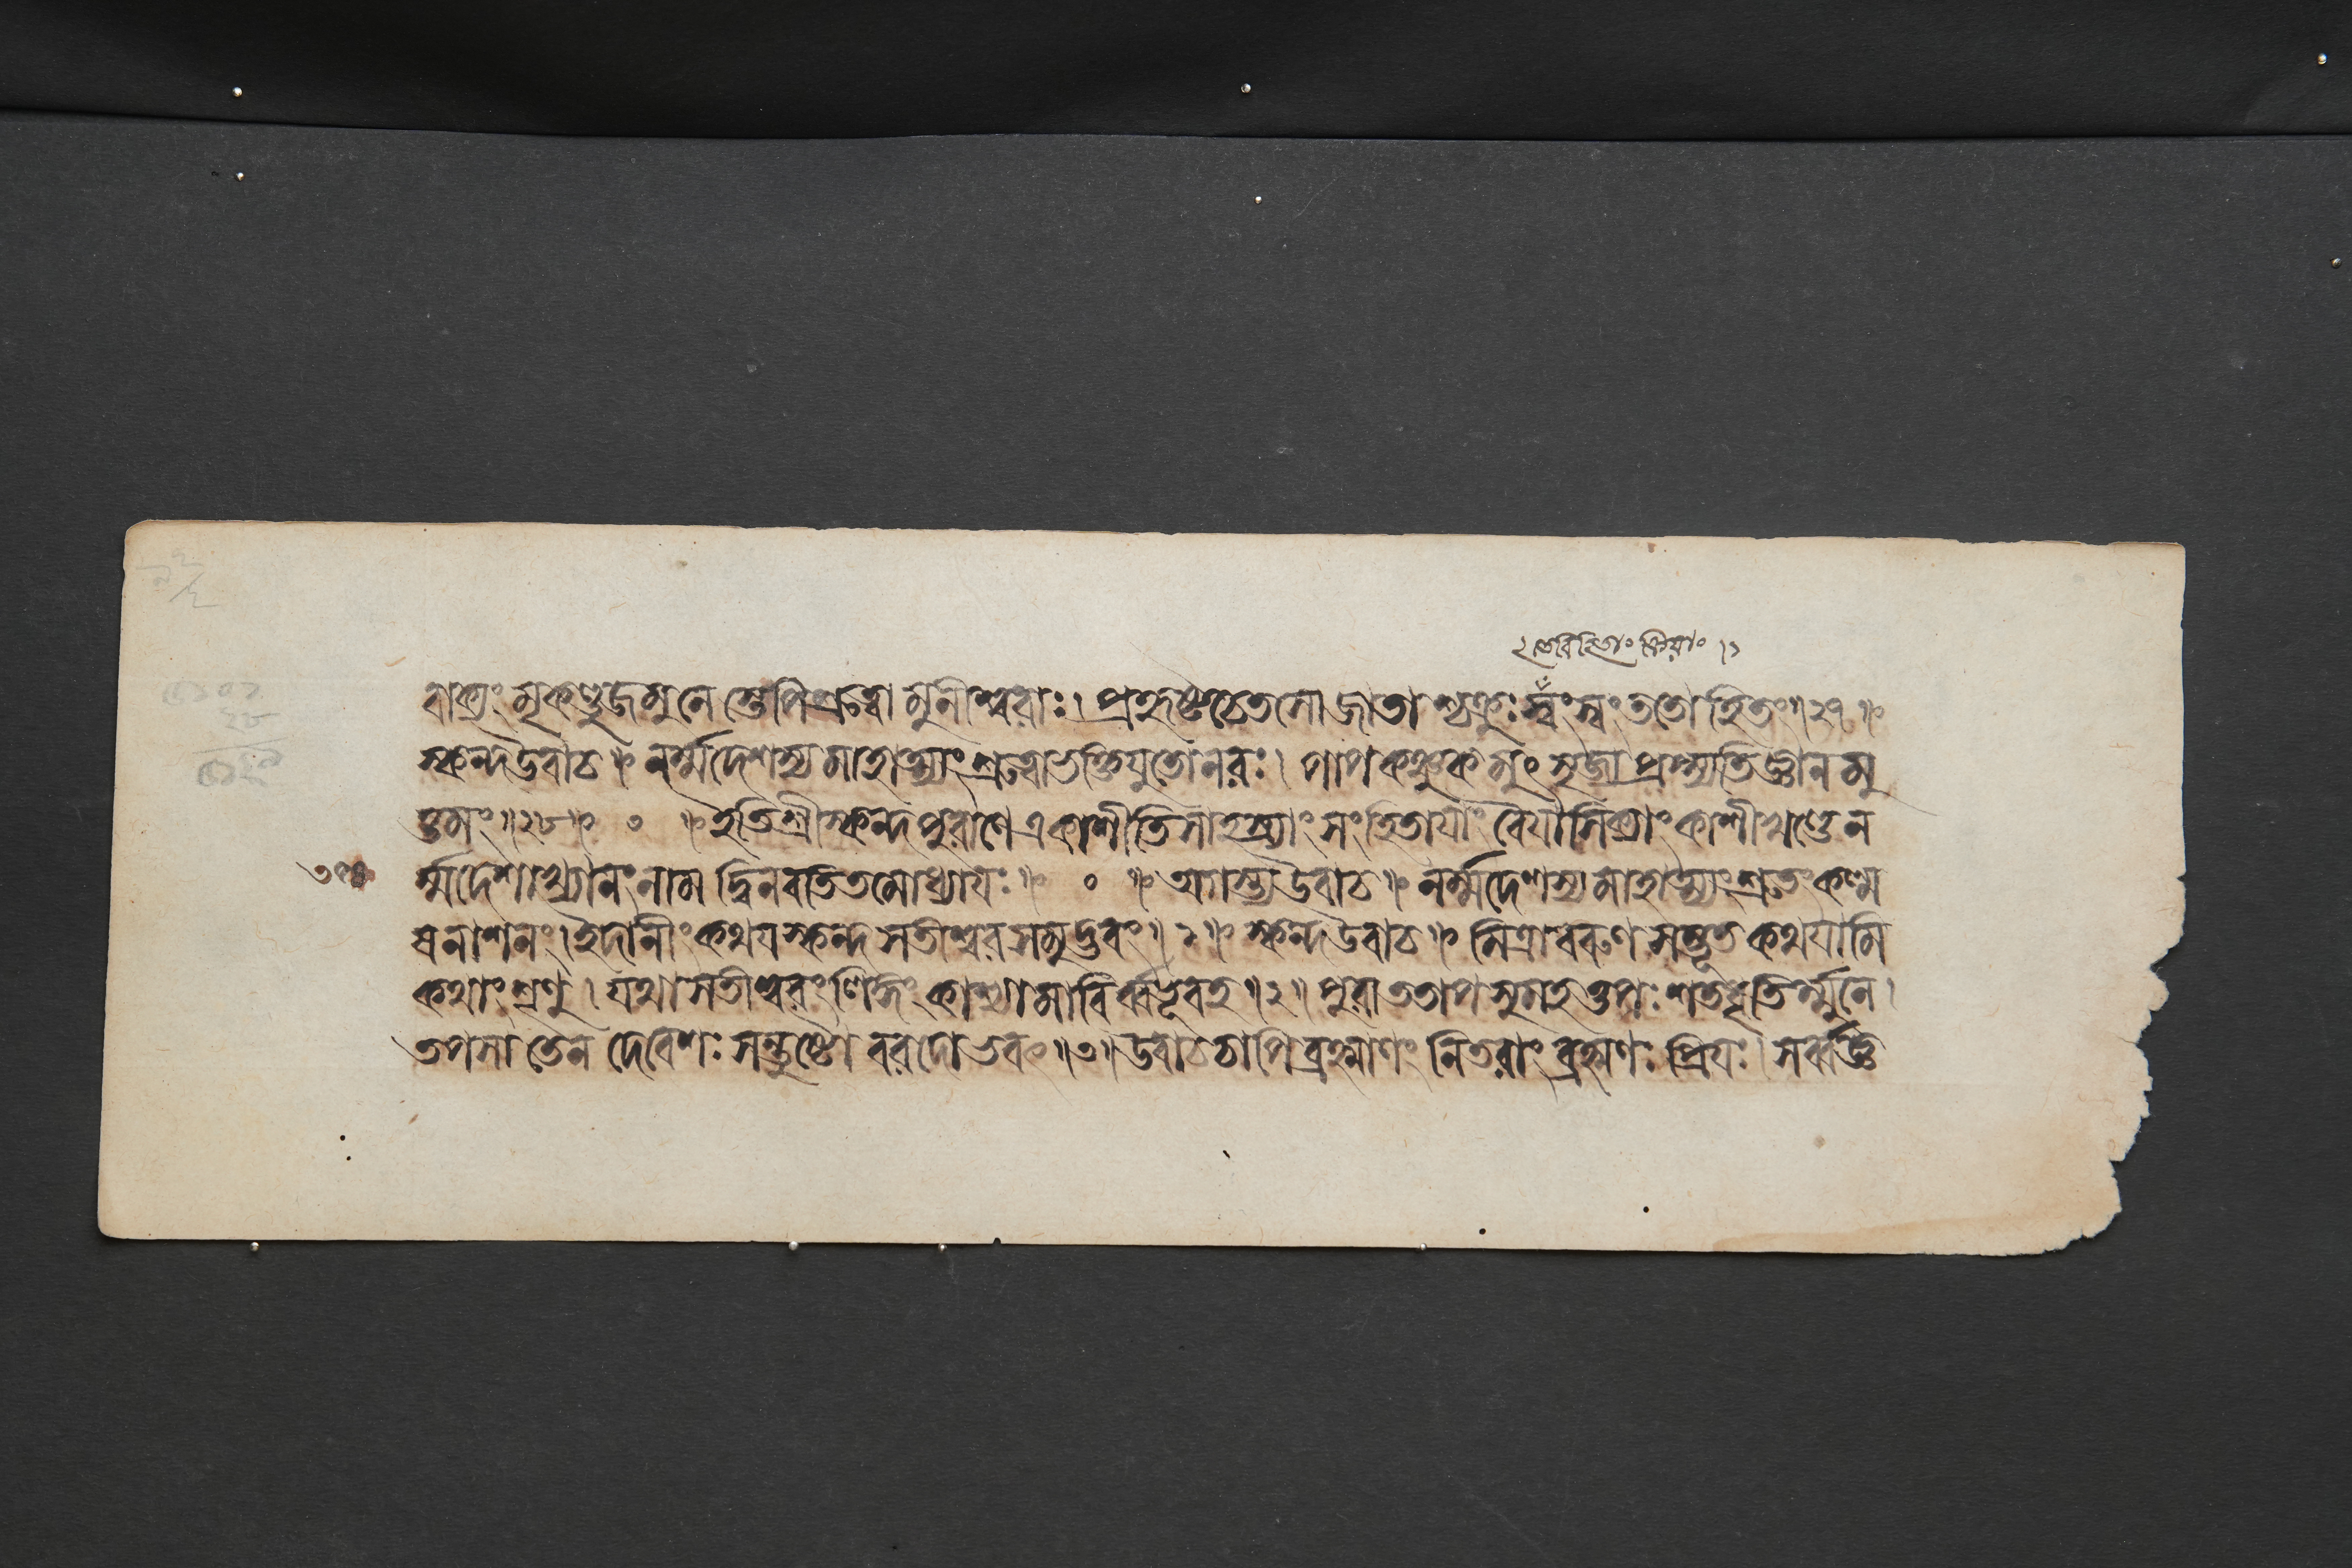 বাক্যং মৃকণ্ডুজমুনেস্তেপিশ্রুত্বা মুনীশ্বরাঃ। প্রহৃষ্টচেতসোজাতাশ্চক্রুঃস্বংস্বংততোহিতং॥২৭॥
স্কন্দউবাচ॥ নর্ম্মদেশস্যমাহাত্ম্যংশ্রুত্বাভক্তিযুতোনরঃ। পাপকঞ্চুকমুৎসৃজ্যপ্রাপ্স্যতিজ্ঞানমু
ত্তমং॥২৮॥ ০ ॥ইতিশ্রীস্কন্দপুরাণেএকাশীতিসাহস্র্যাংসংহিতাযাং বৈযাসিক্যাংকাশীখণ্ডেন
র্ম্মদেশাখ্যানংনাম দ্বিনবতিতমোধ্যাযঃ॥ ০ ॥অগস্ত্যউবাচ॥নর্ম্মদেশস্যমাহাত্ম্যংশ্রুতংকল্ম
ষনাশনং।ইদানীংকথযস্কন্দ সতীশ্বরসমুদ্ভবং॥১॥স্কন্দউবাচ॥মিত্রাবরুণসম্ভূত কথযামি
কথাং শৃণু। যথাসতীশ্বরংলিঙ্গং কাশ্যামাবির্ব্বভূবহ॥২॥ পুরাততাপসুমহত্তপঃশতধৃতির্ম্মুনে।
তপসা তেন দেবেশঃ সন্তুষ্টো বরদোভবৎ॥৩॥উবাচচাপিব্রহ্মাণং নিতরাং ব্রহ্মণঃ প্রিযঃ। সর্ব্বজ্ঞ